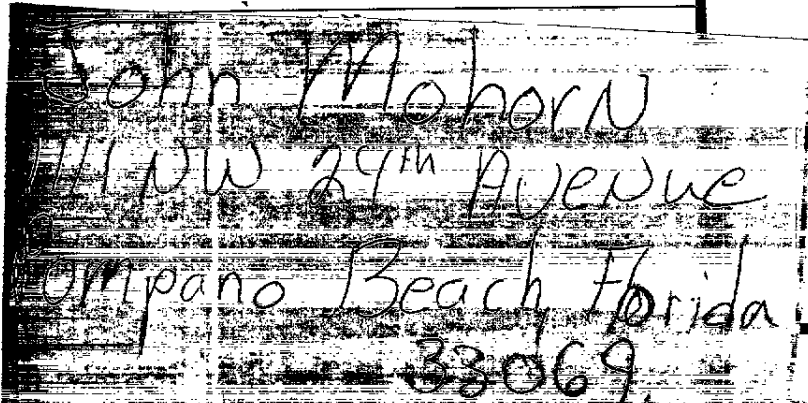 John Mohorn
1141 NW 29th Avenue
Pompano Beach, Florida
33069.